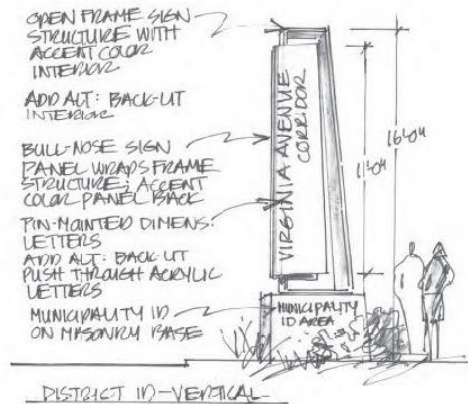 OPEN FRAME SIGN
STRUCTURE WITH
ACCENT COLOR
INTERIOR
ADD ALT: BACK-LIT
INTERIOR
BULL-NOSE SIGN
PANEL WRAPS FRAME
STRUCTURE; ACCENT
COLOR PANEL BACK
PIN-MOUNTED DIMENS.
LETTERS
ADD ALT: BACK LIT
PUSH THROUGH ACRYLIC
LETTERS
MUNICIPALITY ID
ON MASONRY BASE
VIRGINIA AVENUE
CORRIDOR
MUNICIPALITY
ID AREA
DISTRICT ID-VERTICAL